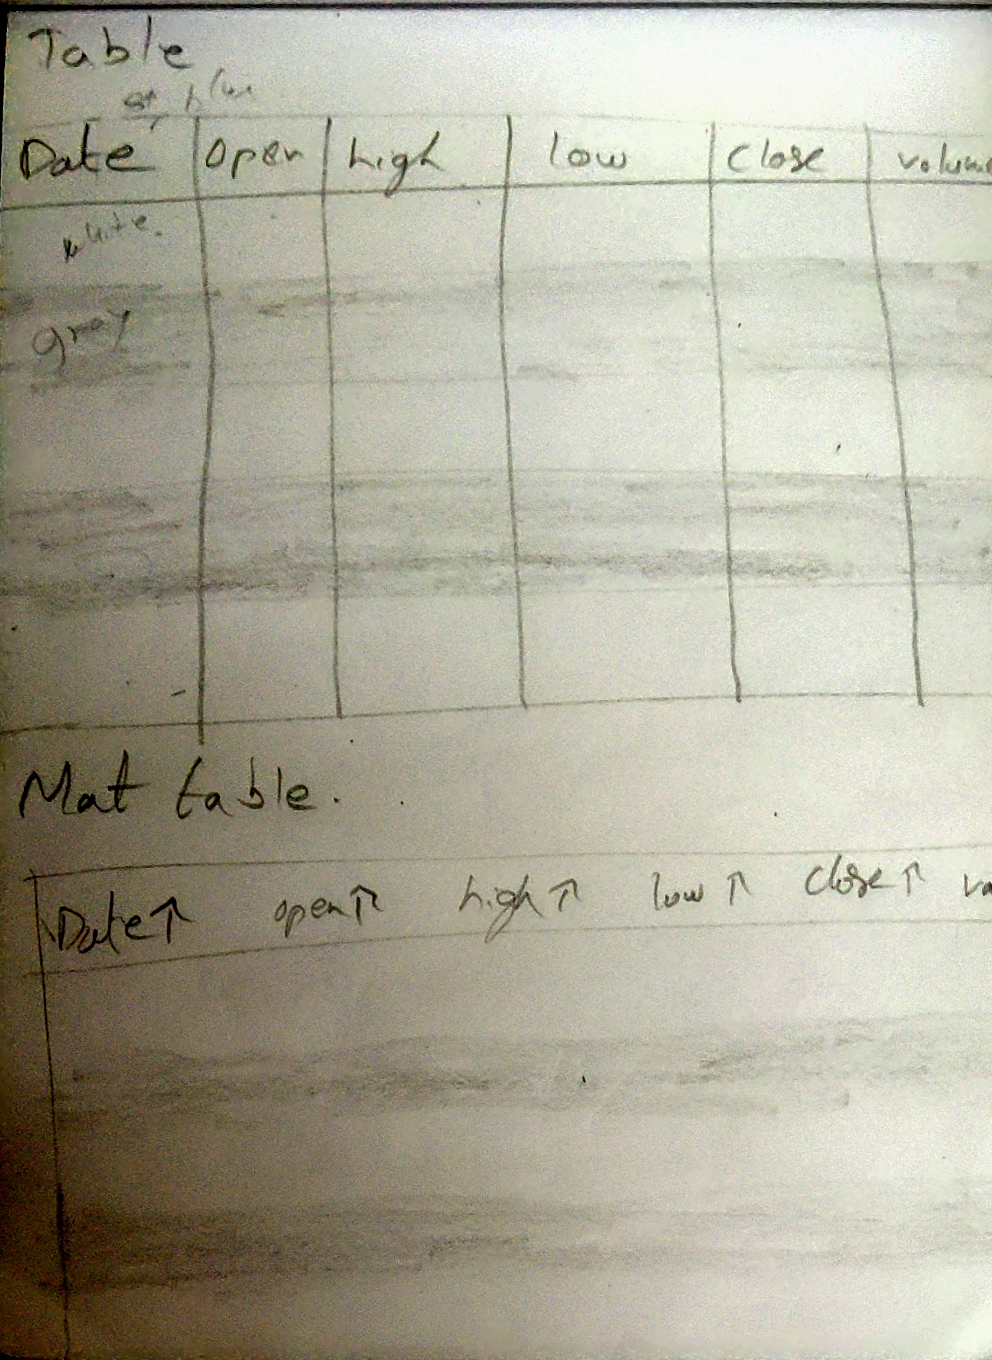 Table
blue
Date open high low close volum
white.
grey
Mat table.
Date↑ open↑ high↑ low↑ close↑ vo